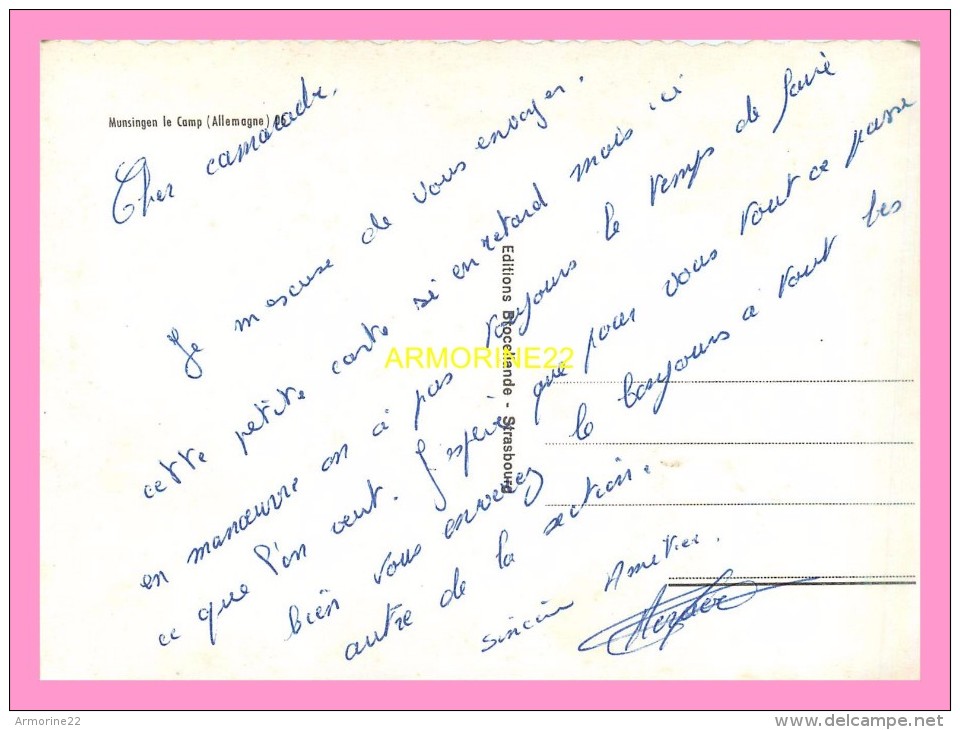 Munsingen le Camp (Allemagne)
Cher camarade.
Je mescuse de vous envoyer.
cette petite carte si en retard mois ici
en manœuvre on à pas toujours le temps de faire
ce que l'on veut. J'espère que pour vous tout ce passe
bien vous envoyez le bonjours à tout les
autre de la section.
Sincère Amitier.
Editions Broceliande - Strasbourg
ARMORINE22
Armorine22
www.delcampe.net